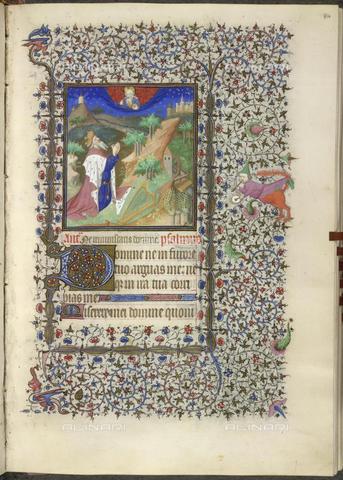 Ant. Ne reminiscaris domine. psalmus
Domine ne in furore
tuo arguas me: ne
q3 in ira tua corri
pias me.
Miserere mei domine quoni
ALINARI
ALINARI